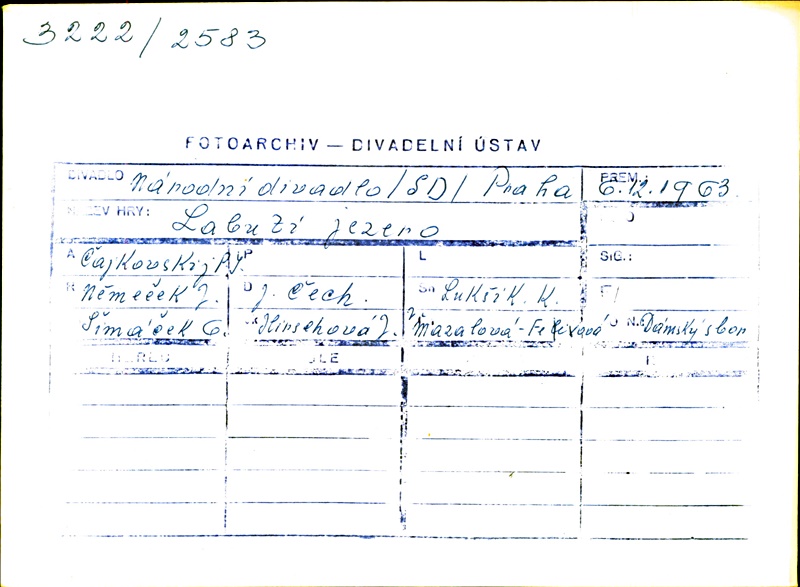 3222/2583
FOTOARCHIV — DIVADELNÍ ÚSTAV
DIVADLO Národní divadlo /SD/ Praha PREM.: 6.12.1963
NÁZEV HRY: Labutí jezero
A Čajkovskij P.I. P L SIG.:
R Němeček J. D J. Čech. Sn Lukšík K. F
Šimáček O. Hirschová J. Mazalová-Fe Dámský sbor